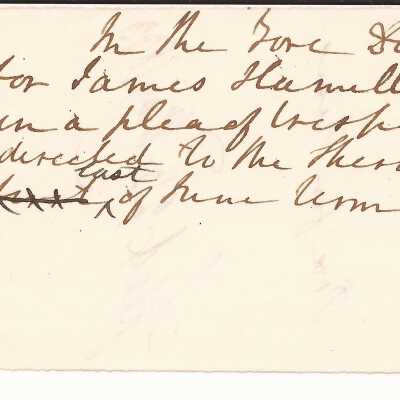 In the Fore Do
for James Hamill
in a plea of tresp
directed to the Sher
last
of June Term